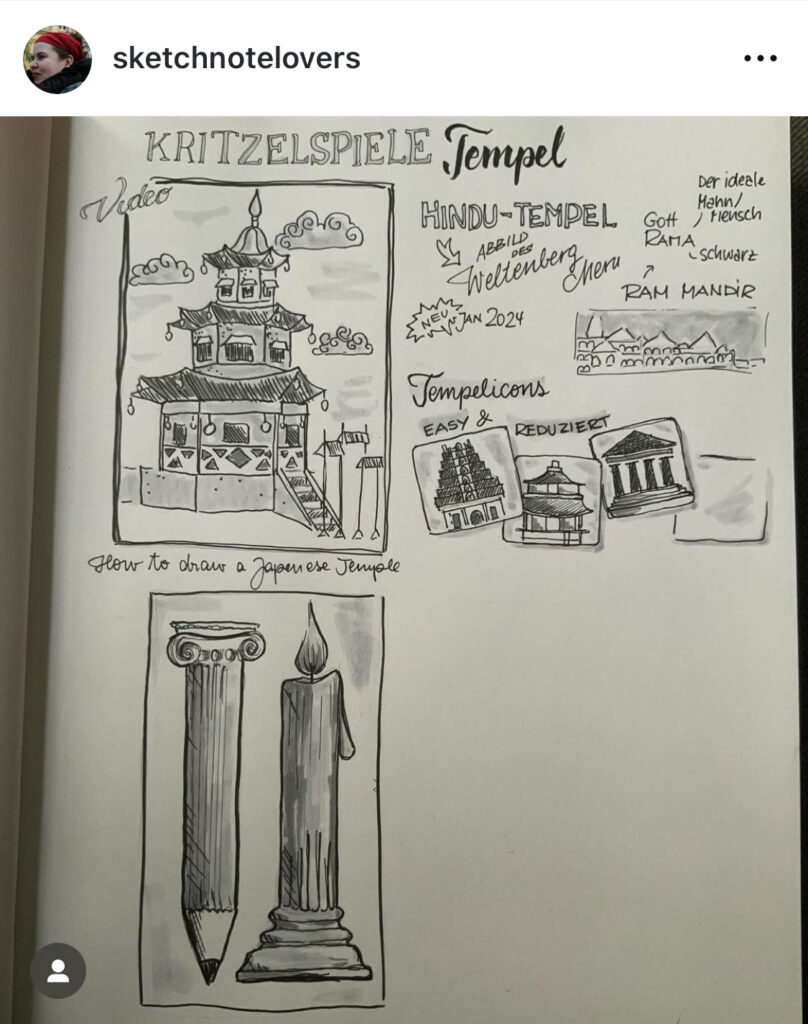 sketchnotelovers
KRITZELSPIELE Tempel
Video
How to draw a Japenese Temple
HINDU-TEMPEL
ABBILD
DES
Weltenberg
Meru
NEU
JAN 2024
Der ideale
Mann/
Mensch
Gott
RAMA
schwarz
RAM MANDIR
Tempelicons
EASY & REDUZIERT